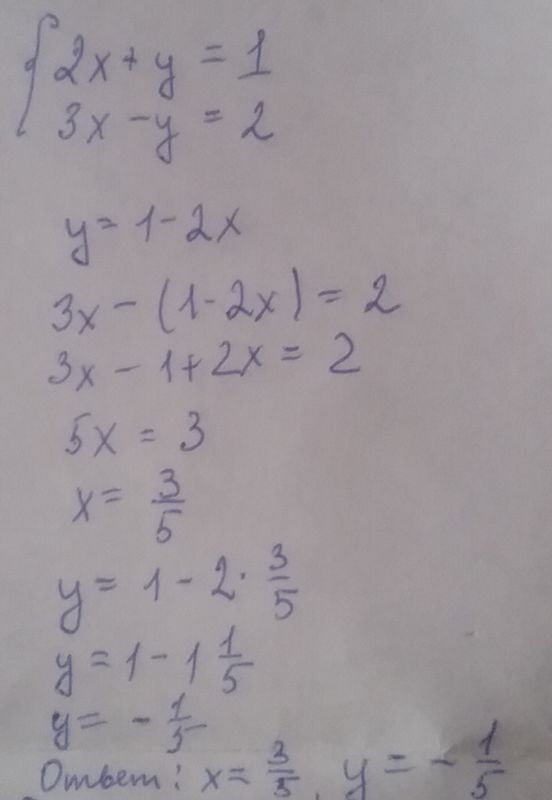 {2x + y = 1
3x - y = 2
y = 1 - 2x
3x - (1 - 2x) = 2
3x - 1 + 2x = 2
5x = 3
x = 3/5
y = 1 - 2 · 3/5
y = 1 - 1 1/5
y = - 1/5
Ответ: x = 3/5, y = - 1/5